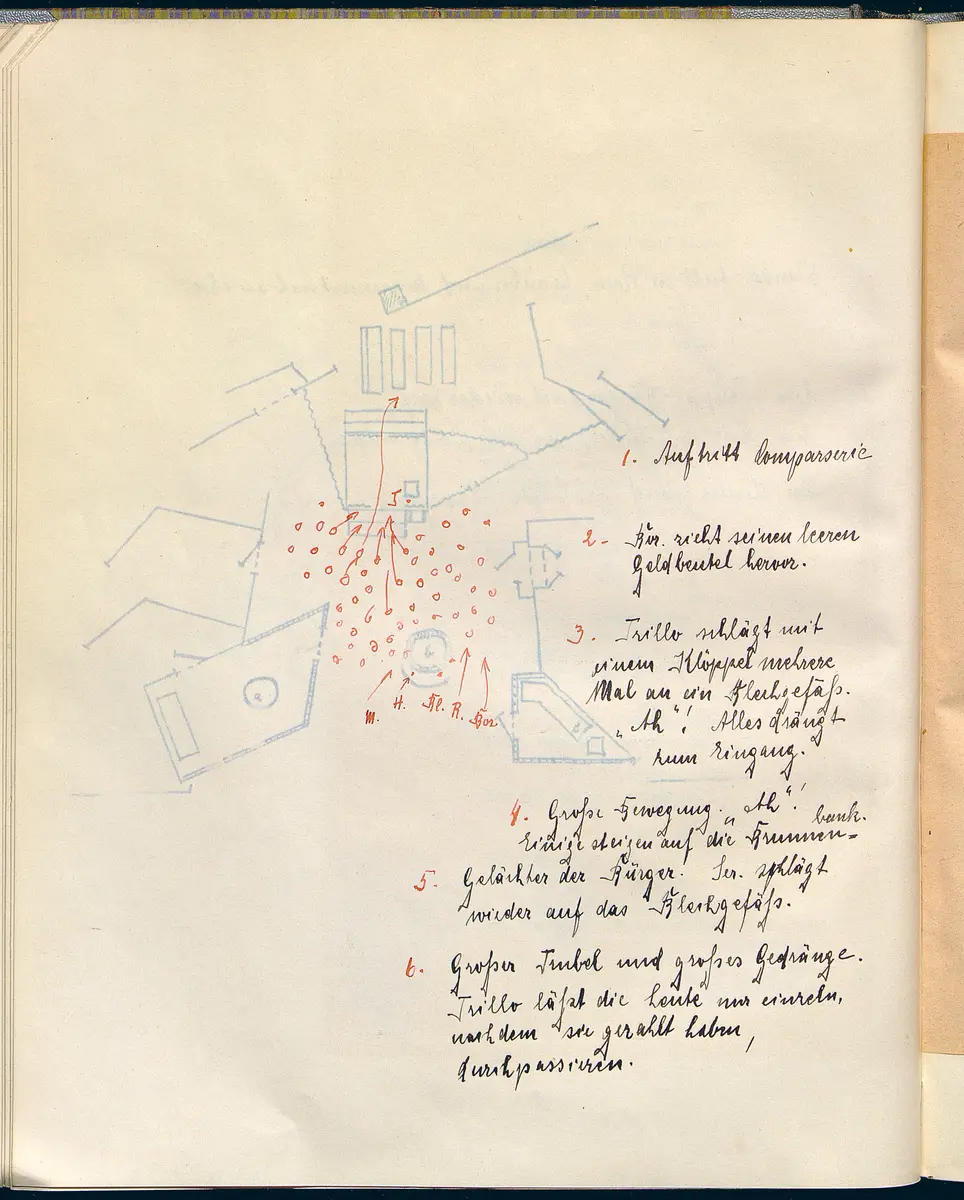 1. Auftritt Comparserie
2- Bor. zieht seinen leeren
Geldbeutel hervor.
3. Trillo schlägt mit
einem Klöppel mehrere
Mal an ein Blechgefäß.
„Ah“! Alles drängt
zum Eingang.
4. Große Bewegung. „Ah“!
Einige steigen auf die Brunnen=
bank.
5. Gelächter der Bürger. Ser. schlägt
wieder auf das Blechgefäß.
6. Großer Trubel und großes Gedränge.
Trillo läßt die Leute nur einzeln,
nachdem sie gezahlt haben,
durchpassieren.
T.
a
b
M. H. Bl. R. Bor